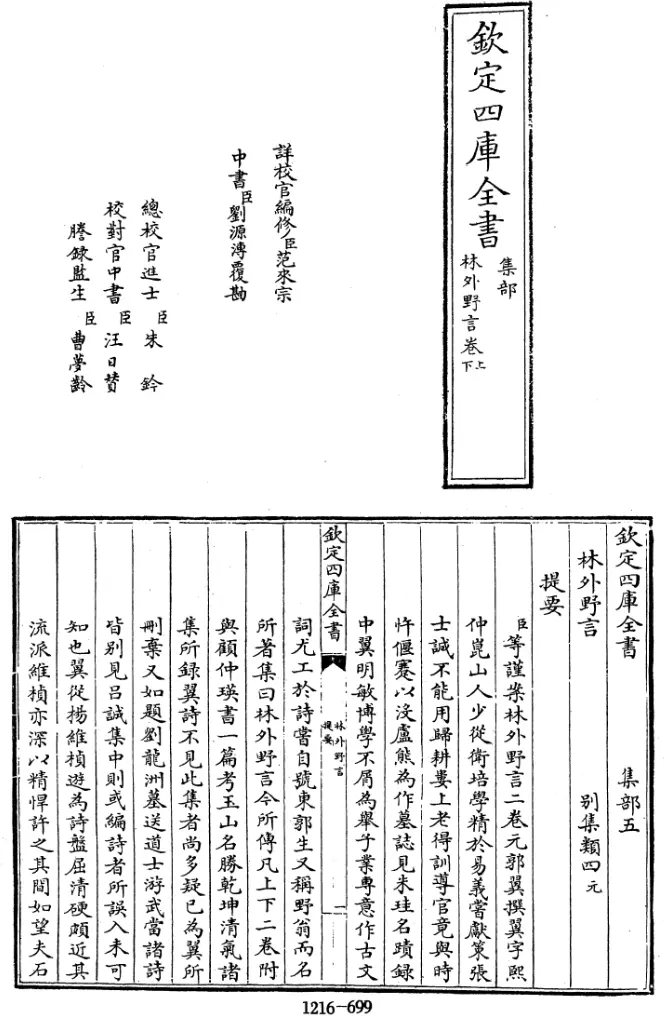 欽定四庫全書
集部
林外野言卷上下
詳校官編修臣范來宗
中書臣劉源溥覆勘
總校官進士臣朱鈐
校對官中書臣汪日贊
謄錄監生臣曹夢齡
欽定四庫全書 集部五
林外野言 别集類四元
提要
臣等謹案林外野言二卷元郭翼撰翼字熙
仲崑山人少從衛培學精於易義嘗獻策張
士誠不能用歸耕婁上老得訓導官竟與時
忤偃蹇以没盧熊為作墓誌見朱珪名蹟録
中翼明敏博學不屑為舉子業專意作古文
欽定四庫全書 林外野言提要 一
詞尤工於詩嘗自號東郭生又稱野翁而名
所著集曰林外野言今所傳凡上下二卷附
與顧仲瑛書一篇考玉山名勝乾坤清氣諸
集所録翼詩不見此集者尚多疑已為翼所
刪棄又如題劉龍洲墓送道士游武當諸詩
皆别見吕誠集中則或編詩者所誤入未可
知也翼從楊維楨遊為詩盤屈清硬頗近其
流派維楨亦深以精悍許之其間如望夫石
1216-699